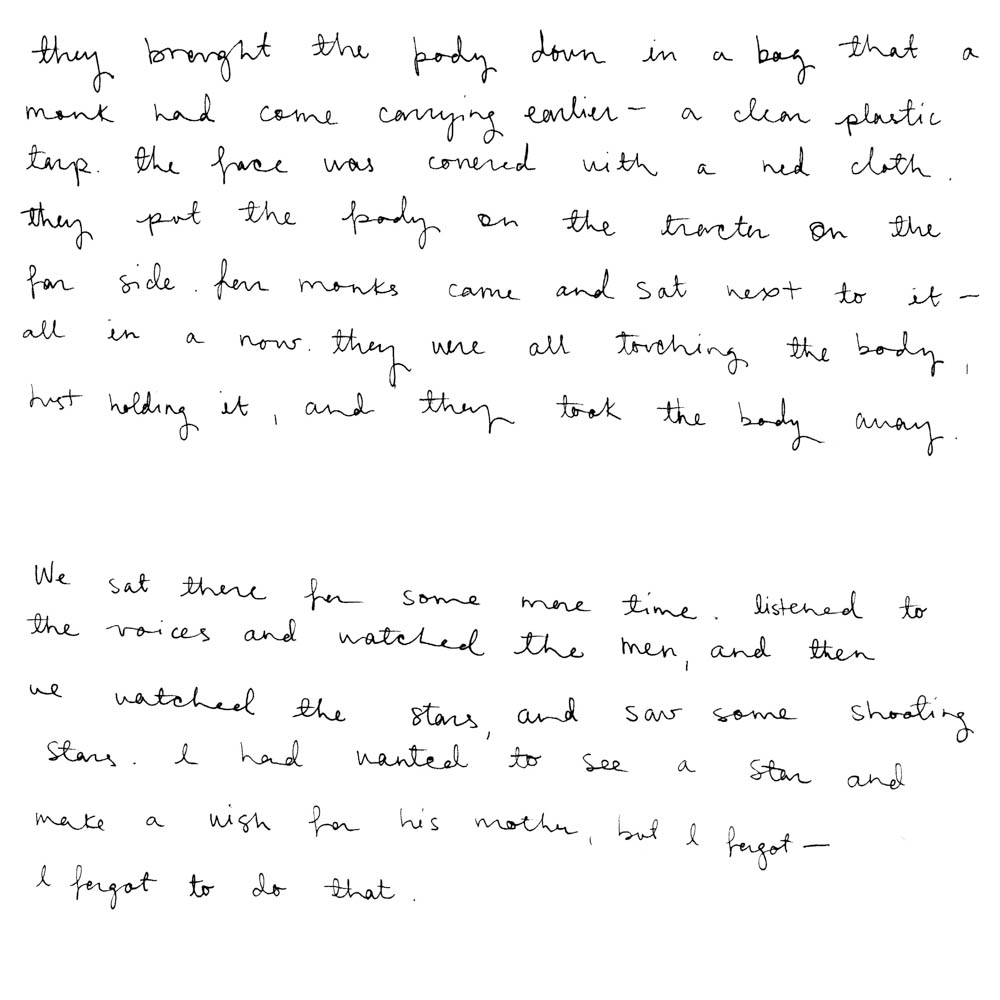 they brought the body down in a bag that a
monk had come carrying earlier – a clear plastic
tarp. the face was covered with a red cloth.
they put the body on the tractor on the
far side. four monks came and sat next to it –
all in a row. they were all touching the body,
just holding it, and they took the body away.
We sat there for some more time. listened to
the voices and watched the men, and then
we watched the stars, and saw some shooting
stars. I had wanted to see a star and
make a wish for his mother, but I forgot –
I forgot to do that.